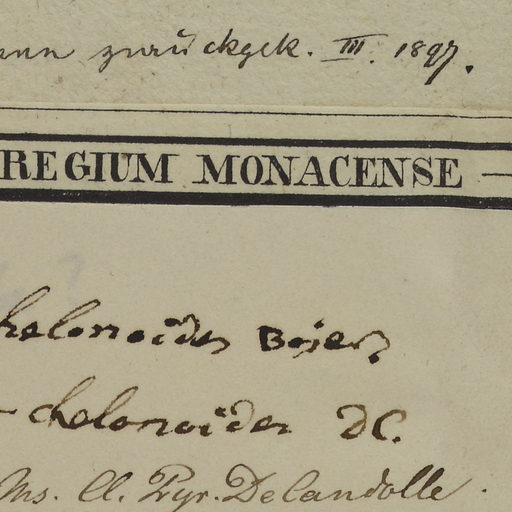 zurückgek. III. 1897.
REGIUM MONACENSE
helonoides Bojer
chelonoides DC.
Ms. Cl. Pyr. DeCandolle.